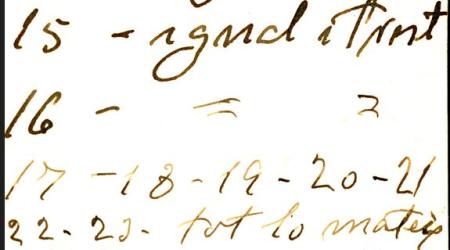 15 - igual
16 - = =
17 - 18 - 19 - 20 - 21
22 - 23 - tot lo mateix